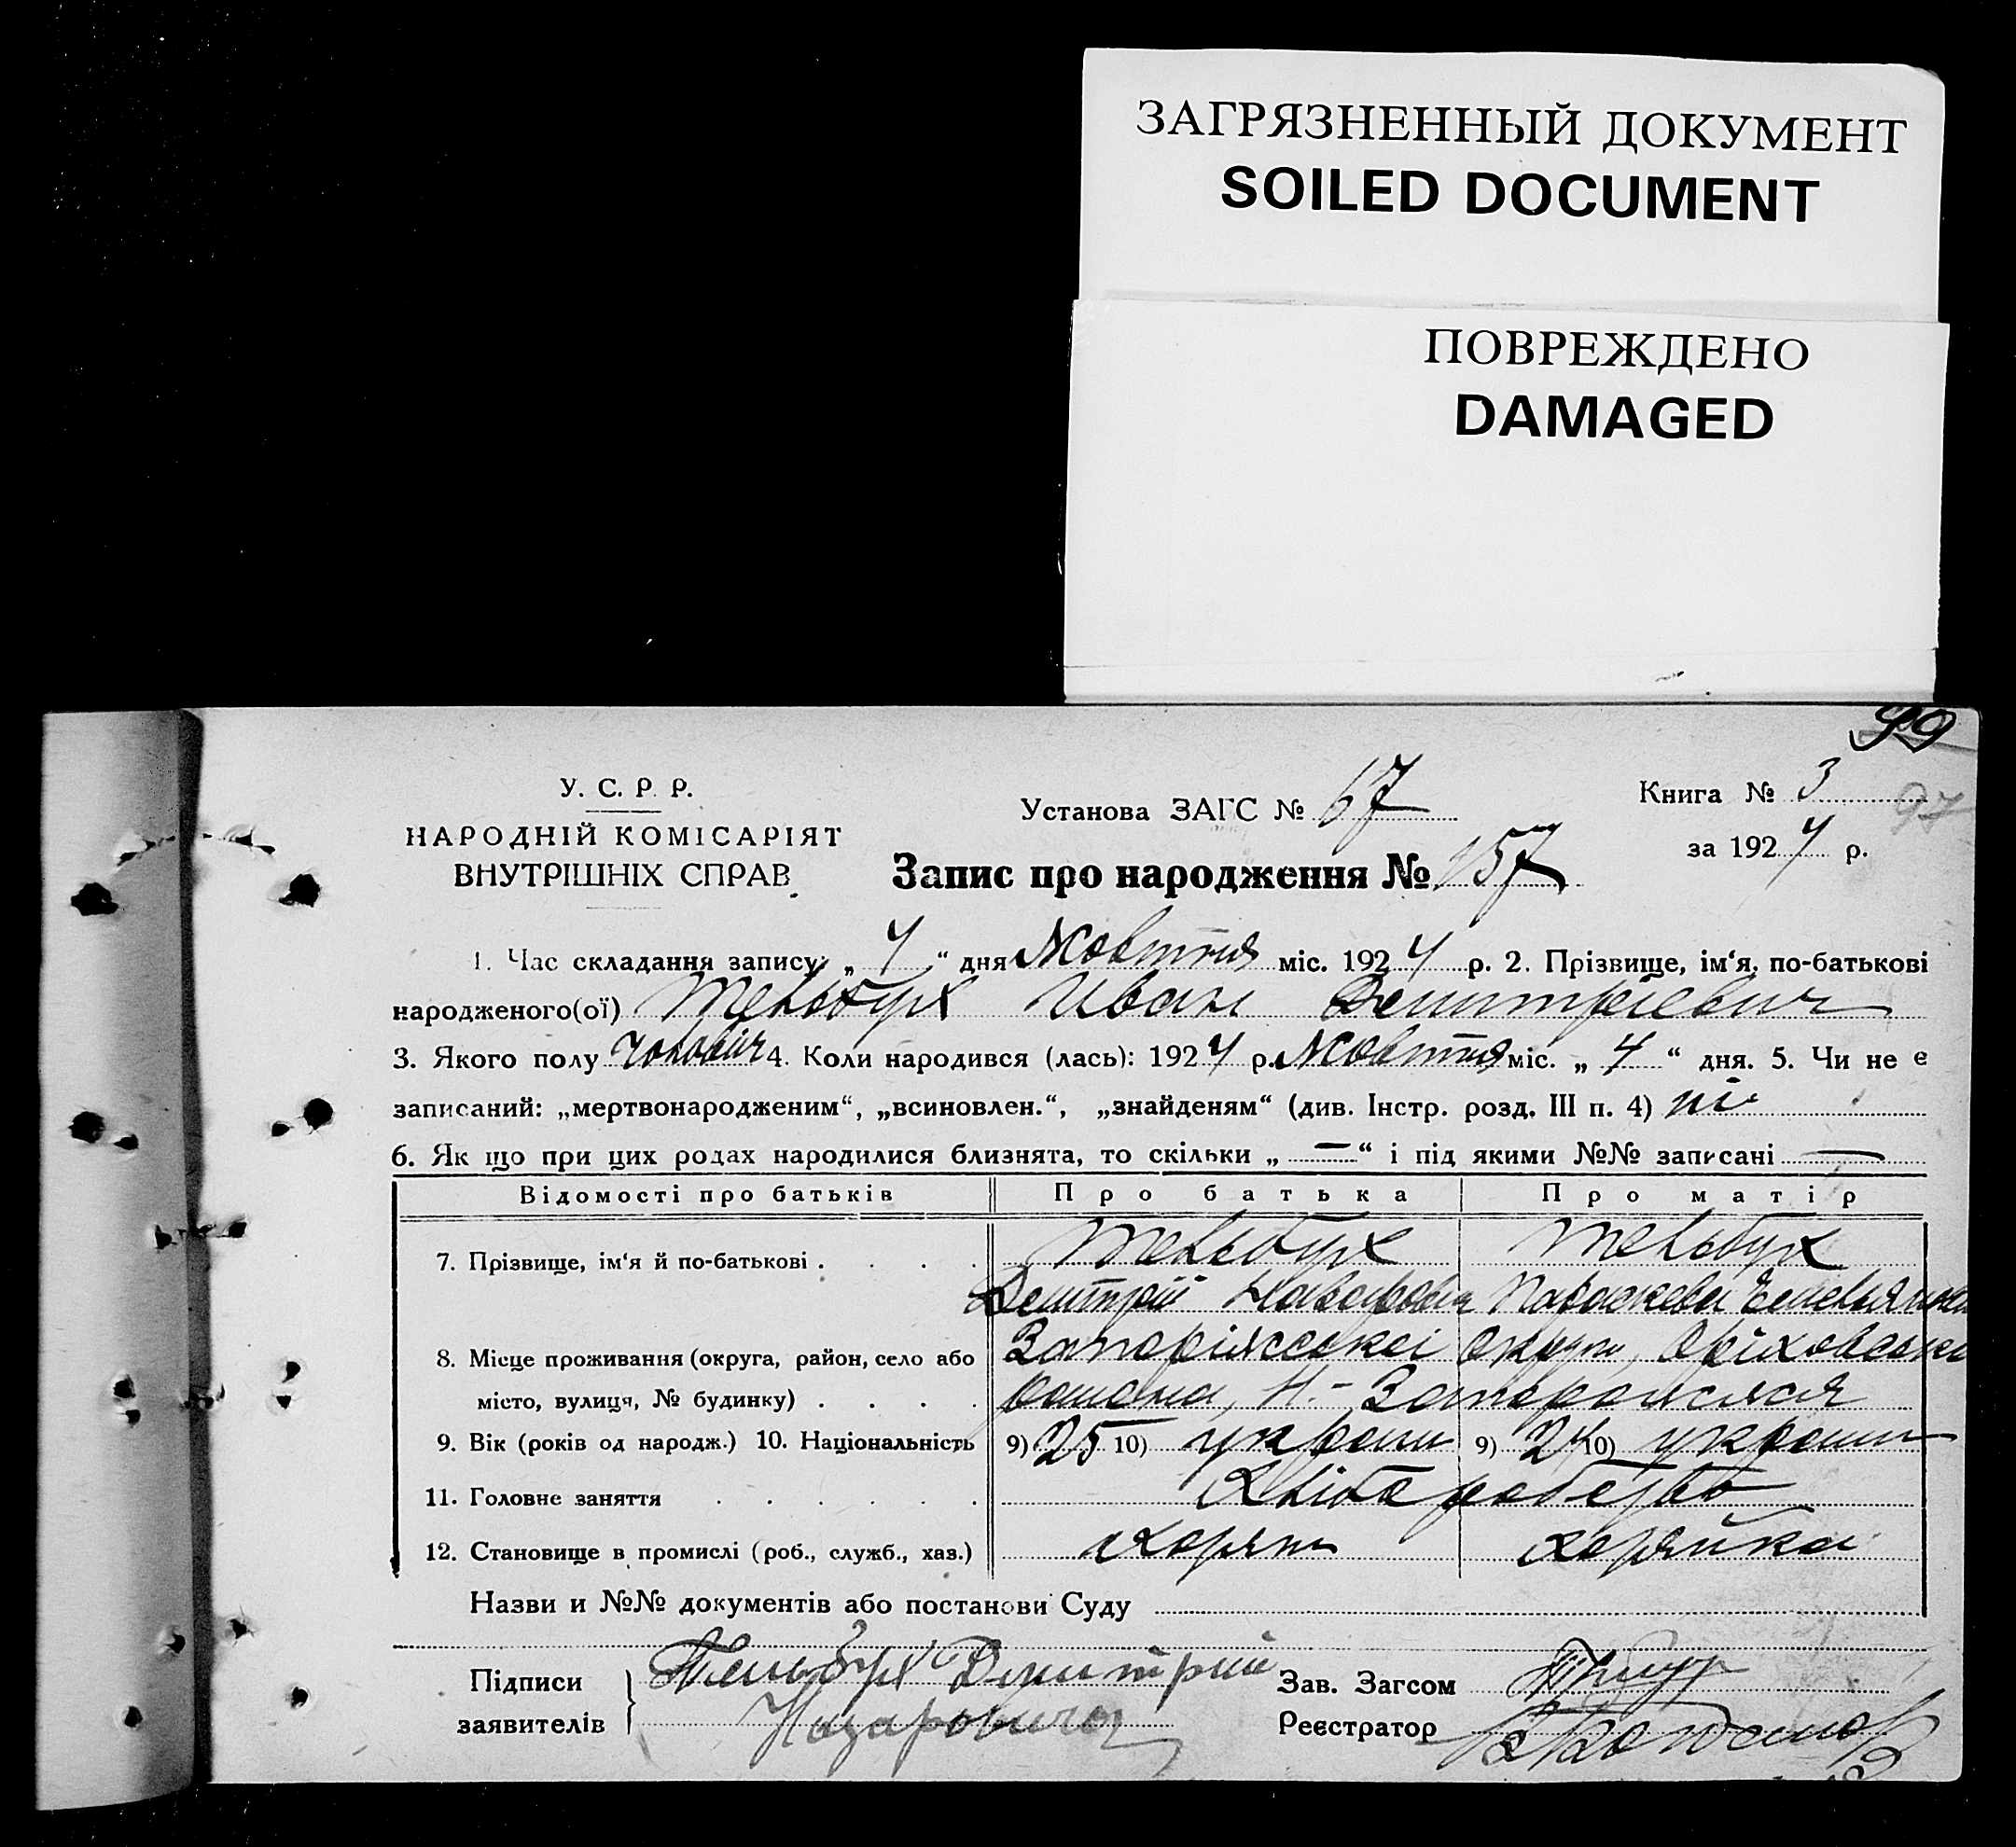 ЗАГРЯЗНЕННЫЙ ДОКУМЕНТ
SOILED DOCUMENT
ПОВРЕЖДЕНО
DAMAGED
99
У. С. Р. Р.
Установа ЗАГС № 67
Книга № 3
97
НАРОДНІЙ КОМІСАРІЯТ
за 1924 р.
ВНУТРІШНІХ СПРАВ
Запис про народження № 157
1. Час складання запису: „ 4 “ дня Жовтня міс. 1924 р. 2. Прізвище, ім‘я, по-батькові
народженого(ої) Тельбух Иван Демитрієвич
3. Якого полу чоловіч 4. Коли народився (лась): 1924 р. Жовтня міс. „ 4 “ дня. 5. Чи не є
записаний: „мертвонародженим“, „всиновлен.“, „знайденям“ (див. Інстр. розд. III п. 4) ні
6. Як що при цих родах народилися близнята, то скільки „ — “ і під якими №№ записані —
Відомості про батьків Про батька Про матір
7. Прізвище, ім‘я й по-батькові . . . . Тельбух Тельбух
Демитрій Назарович Параскева
8. Місце проживання (округа, район, село або Запоріжської округи, Оріховського
місто, вулиця, № будинку) . . . . района, Н.-Запорожжя
9. Вік (років од народж.) 10. Національність 9) 25 10) украин 9) 24 10) украин
11. Головне заняття . . . . . . Хліборобство
12. Становище в промислі (роб., служб., хаз.) хозяин хозяйка
Назви и №№ документів або постанови Суду
Підписи Тельбух Дмитрий Зав. Загсом
заявителів Назарович Реєстратор